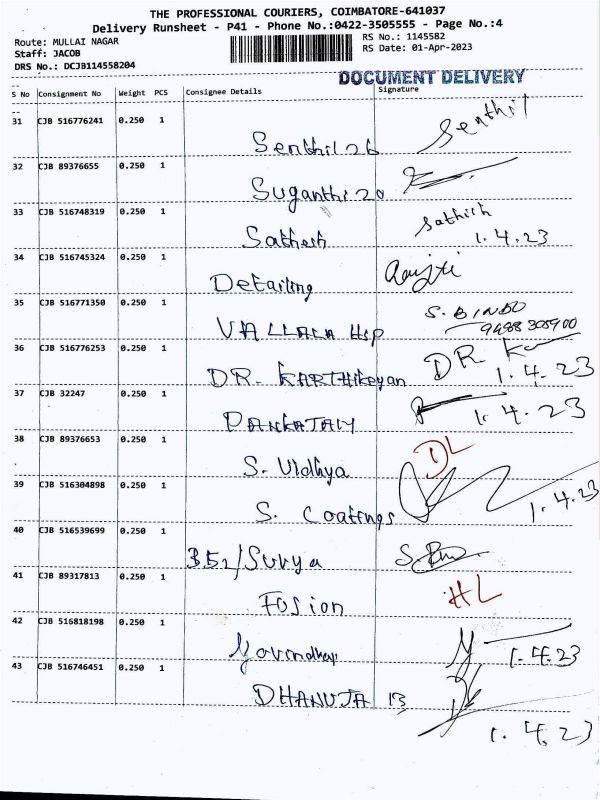 THE PROFESSIONAL COURIERS, COIMBATORE-641037
Delivery Runsheet - P41 - Phone No.:0422-3505555 - Page No.:4
Route: MULLAI NAGAR
Staff: JACOB
DRS No.: DCJB114558204
RS No.: 1145582
RS Date: 01-Apr-2023
DOCUMENT DELIVERY
S No Consignment No Weight PCS Consignee Details Signature
31 CJB 516776241 0.250 1
Senthil 26 Senthil
32 CJB 89376655 0.250 1
Suganthi 20
33 CJB 516748319 0.250 1
Sathesh Sathish
1.4.23
34 CJB 516745324 0.250 1
Detailing
35 CJB 516771350 0.250 1
VALLALA HSP S. BINDO
36 CJB 516776253 0.250 1
DR. KARTHIKeyan DR K
1.4.23
37 CJB 32247 0.250 1
PANKAJAM 1.4.23
38 CJB 89376653 0.250 1
S. Vidhya DL
39 CJB 516304898 0.250 1
S. Coatings 1.4.23
40 CJB 516539699 0.250 1
352/Surya
41 CJB 89317813 0.250 1
Fusion HL
42 CJB 516818198 0.250 1
1.4.23
43 CJB 516746451 0.250 1
DHANUJA 13
1.4.23